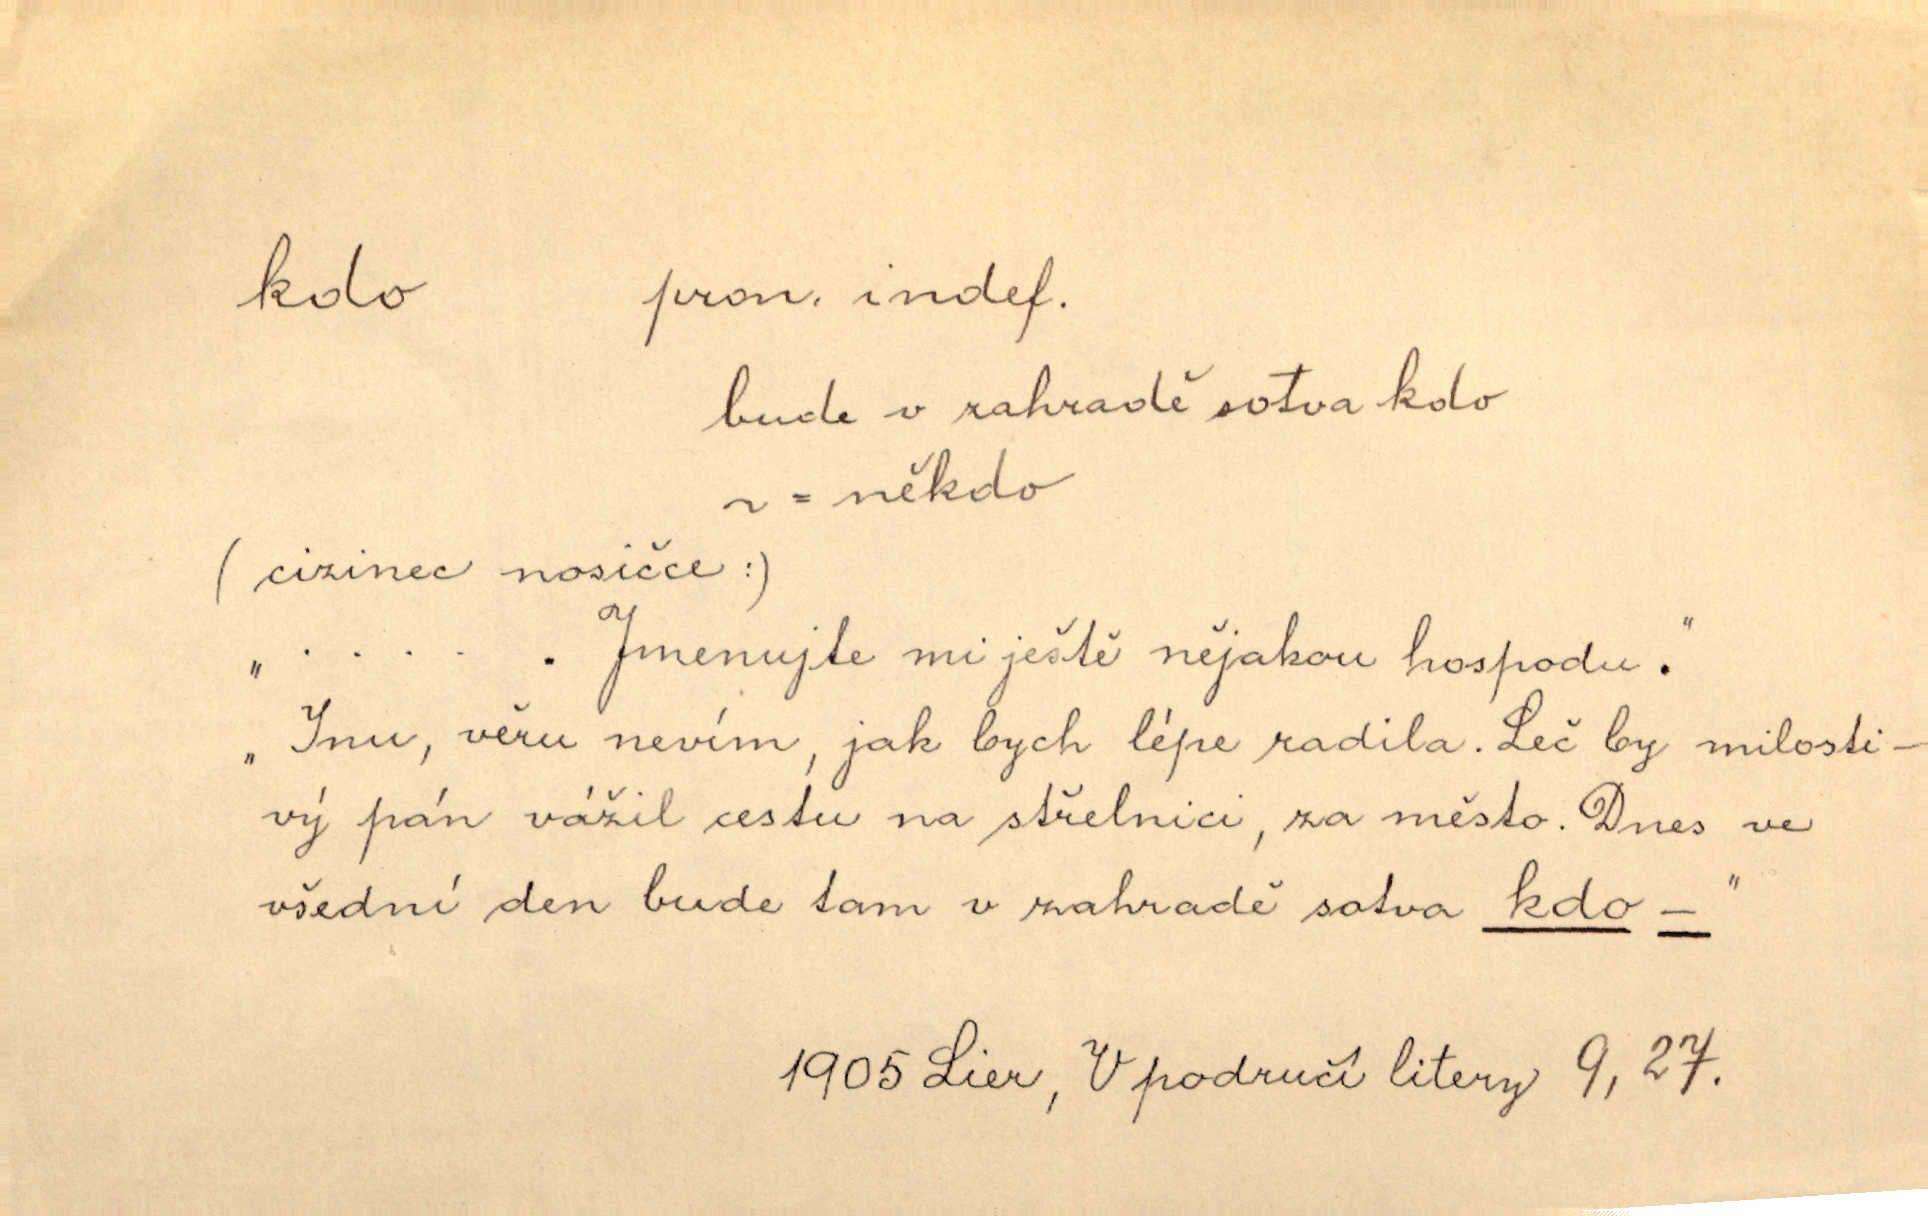 kdo pron. indef.
bude v zahradě sotva kdo
~ = někdo
(cizinec nosičce:)
„ . . . . . Jmenujte mi ještě nějakou hospodu."
„Inu, věru nevím, jak bych lépe radila. Leč by milosti-
vý pán vážil cestu na střelnici, za město. Dnes ve
všední den bude tam v zahradě sotva kdo —"
1905 Lier, V područí litery 9, 27.